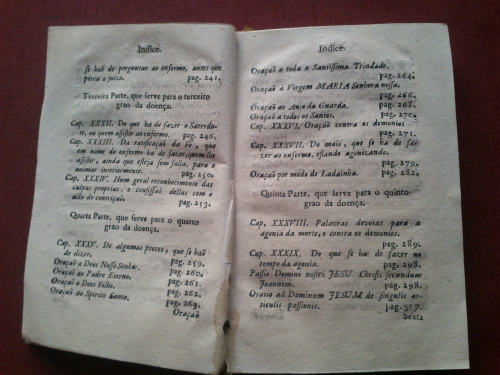 Indice.
se haõ de perguntar ao enfermo, antes que
perca o juizo. pag. 241.
Terceira Parte, que serve para o terceiro
grao da doença.
Cap. XXXII. Do que ha de fazer o Sacerdo-
te, ou quem assistir ao enfermo. pag. 246.
Cap. XXXIII. Da ratificaçaõ da Fé, que
em nome do enfermo ha de fazer, quem lhe
assistir, ainda que esteja sem falla, para o
animar interiormente. pag. 250.
Cap. XXXIV. Hum geral reconhecimento das
culpas proprias, e confissaõ dellas com o
acto de contriçaõ. pag. 253.
Quarta Parte, que serve para o quarto
grao da doença.
Cap. XXXV. De algumas preces, que se haõ
de dizer.
Oraçaõ a Deos Nosso Senhor. pag. 259.
Oraçaõ ao Padre Eterno. pag. 260.
Oraçaõ a Deos Filho. pag. 261.
Oraçaõ ao Spirito Santo. pag. 262.
pag. 263.
Oraçaõ
Indice.
Oraçaõ a toda a Santissima Trindade.
pag. 264.
Oraçaõ à Virgem MARIA Senhora nossa.
pag. 266.
Oraçaõ ao Anjo da Guarda. pag. 268.
Oraçaõ a todos os Santos. pag. 270.
Cap. XXXVI. Oraçaõ contra os demonios.
pag. 271.
Cap. XXXVII. Do mais, que se ha de fa-
zer ao enfermo, estando agonizando.
pag. 279.
Oraçaõ por modo de Ladainha. pag. 282.
Quinta Parte, que serve para o quinto
grao da doença.
Cap. XXXVIII. Palavras devotas para a
agonia da morte, e contra os demonios.
pag. 289.
Cap. XXXIX. Do que se ha de fazer no
tempo da agonia. pag. 298.
Passio Domini nostri JESU Christi secundum
Joannem. pag. 298.
Oratio ad Dominum JESUM de singulis ar-
ticulis passionis. pag. 307.
Sexta